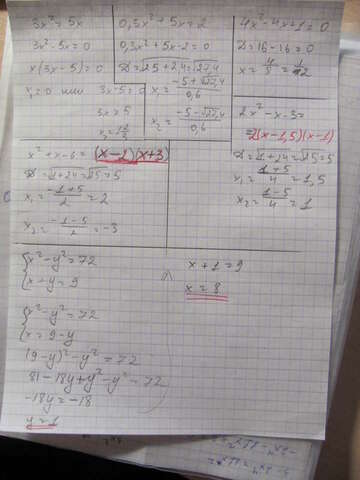 3x² = 5x
3x² - 5x = 0
x(3x - 5) = 0
x₁ = 0 или 3x - 5 = 0
3x = 5
x₂ = 1⅔
0,3x² + 5x = 2
0,3x² + 5x - 2 = 0
x₁ = (-5 + √27,4)/0,6
x₂ = (-5 - √27,4)/0,6
4x² - 4x + 1 = 0
D = 16 - 16 = 0
2x² - x - 3 =
= 2(x - 1,5)(x - 1)
D = √1 + 24 = √25 = 5
x₁ = (1 + 5)/4 = 1,5
x₂ = (1 - 5)/4 = 1
x² + x - 6 = (x - 2)(x + 3)
D = √1 + 24 = √25 = 5
x₁ = (-1 + 5)/2 = 2
x₂ = (-1 - 5)/2 = -3
{x² - y² = 72
{x + y = 9
{x² - y² = 72
{x = 9 - y
(9 - y)² - y² = 72
81 - 18y + y² - y² = 72
-18y = -18
y = 1
x + 1 = 9
x = 8